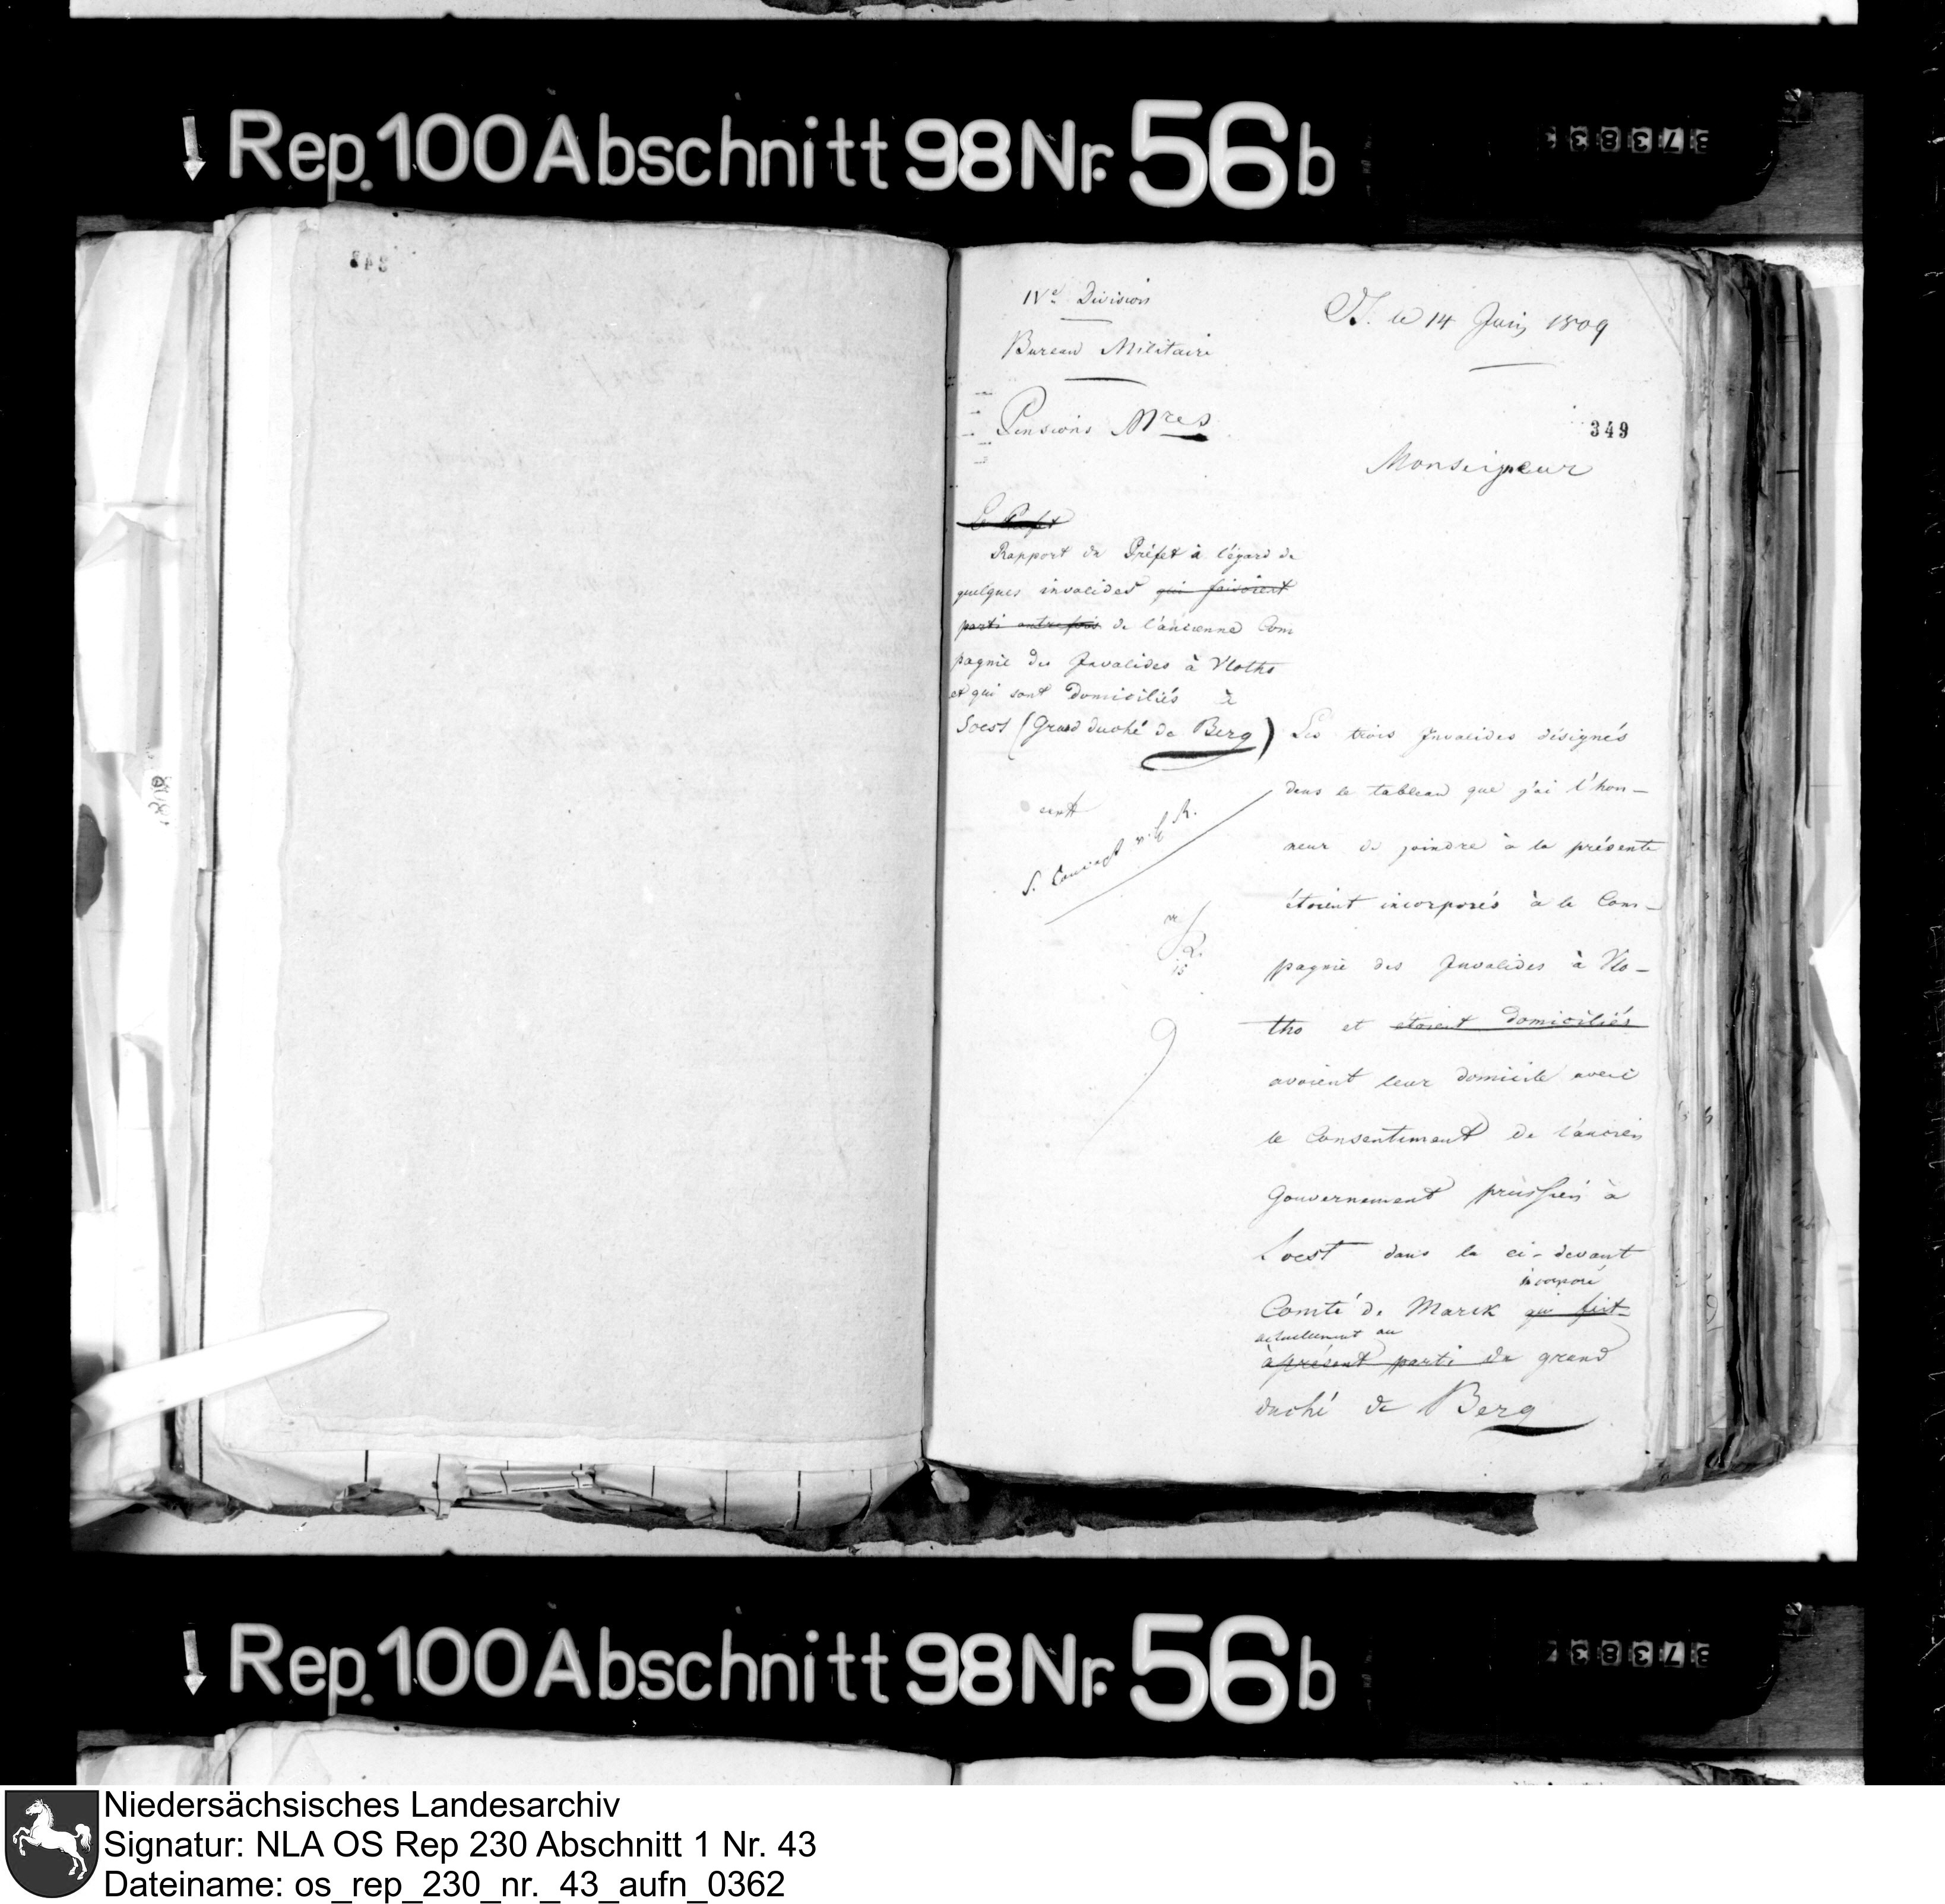 Rep. 100 Abschnitt 98 Nr. 56 b
348
IVe Division
Bureau Militaire
Pensions Mres
le 14 Juin 1809
349
Monseigneur
Le Préfet
Rapport du Préfet à l'égard de
quelques invalides qui faisoient
parti autrefois de l'ancienne Com
pagnie des Invalides à Vlotho
et qui sont domiciliés à
Soest (Grand duché de Berg)
Les trois Invalides désignés
dans le tableau que j'ai l'hon-
neur de joindre à la présente
étoient incorporés à la Com-
pagnie des Invalides à Vlo-
tho et étoient domiciliés
avoient leur domicile avec
le Consentiment de l'ancien
Gouvernement prussien à
Soest dans le ci-devant
incorporé
Comté de Marck qui fait
actuellement au
àprésent parti du grand
duché de Berg
Rep. 100 Abschnitt 98 Nr. 56 b
Niedersächsisches Landesarchiv
Signatur: NLA OS Rep 230 Abschnitt 1 Nr. 43
Dateiname: os_rep_230_nr._43_aufn_0362